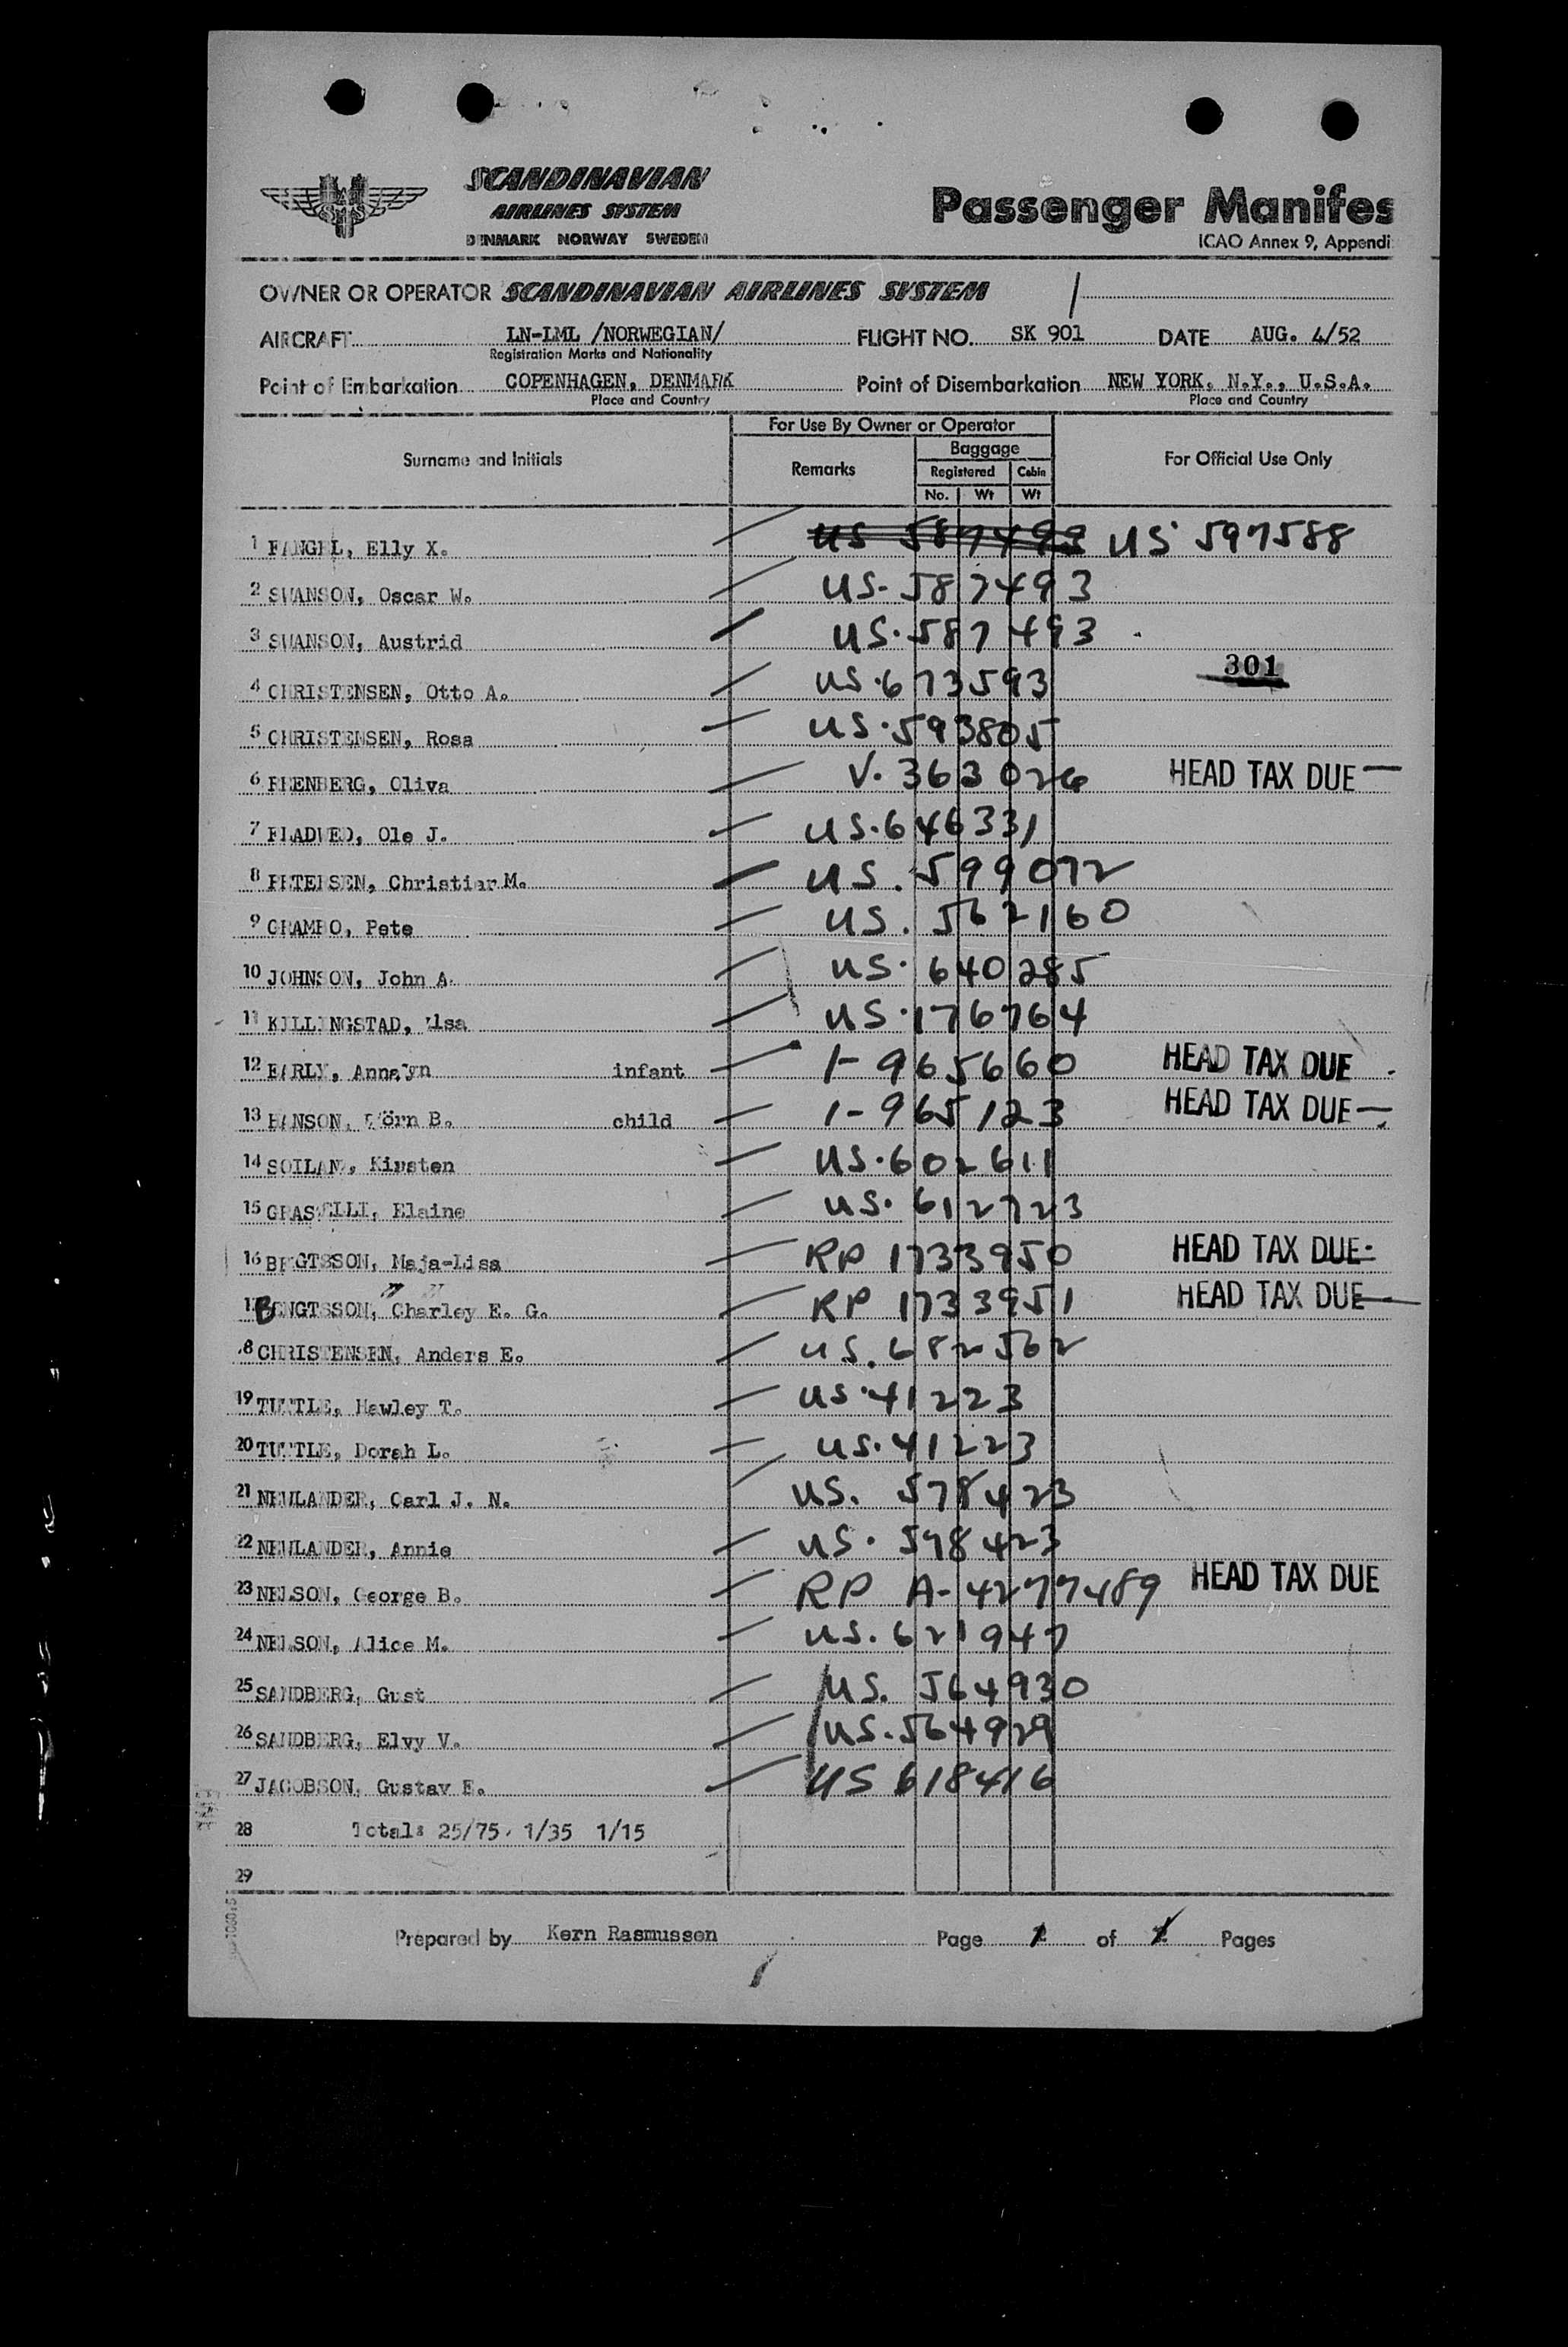 SCANDINAVIAN
AIRLINES SYSTEM
DENMARK NORWAY SWEDEN
Passenger Manifes
ICAO Annex 9, Appendi
OWNER OR OPERATOR SCANDINAVIAN AIRLINES SYSTEM
AIRCRAFT LN-LML /NORWEGIAN/ FLIGHT NO. SK 901 DATE AUG. 4/52
Registration Marks and Nationality
Point of Embarkation COPENHAGEN, DENMARK Point of Disembarkation NEW YORK, N.Y., U.S.A.
Place and Country Place and Country
For Use By Owner or Operator
Surname and Initials Remarks Baggage For Official Use Only
Registered Cabin
No. Wt Wt
1 FANGEL, Elly X. US 587493 US 597588
2 SWANSON, Oscar W. US. 587493
3 SWANSON, Austrid US. 587493
301
4 CHRISTENSEN, Otto A. US. 673593
5 CHRISTENSEN, Rosa US. 593805
6 Oliva V. 363026 HEAD TAX DUE
7 Ole J. US. 646331
8 PETERSEN, Christian M. US. 599072
9 Pete US. 562160
10 JOHNSON, John A. US. 640285
11 KILLINGSTAD, US. 176764
12 EARLY, Annalyn infant 1-965660 HEAD TAX DUE
13 HANSON, Björn B. child 1-965123 HEAD TAX DUE
14 Kirsten US. 602611
15 Elaine US. 612723
16 BENGTSSON, Maja-Lisa RP 1733950 HEAD TAX DUE
17 BENGTSSON, Charley E. G. RP 1733951 HEAD TAX DUE
18 CHRISTENSEN, Anders E. US. 682562
19 TUTTLE, Hawley T. US. 41223
20 TUTTLE, Dorah L. US. 41223
21 NEULANDER, Carl J. N. US. 578423
22 NEULANDER, Annie US. 578423
23 NELSON, George B. RP A-4277489 HEAD TAX DUE
24 NELSON, Alice M. US. 621947
25 SANDBERG, Gust US. 564930
26 SANDBERG, Elvy V. US. 564929
27 JACOBSON, Gustav E. US 618416
28 Total: 25/75, 1/35 1/15
29
Prepared by Kern Rasmussen Page of Pages